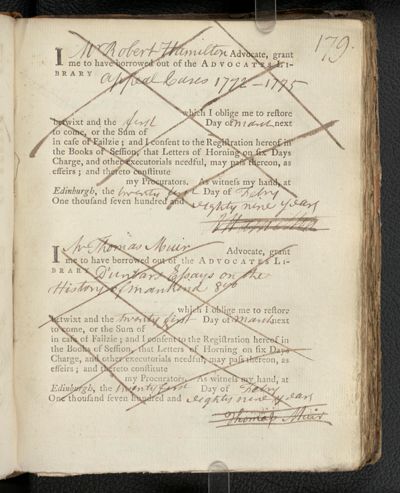 179.
I Mr Robert Hamilton Advocate, grant
me to have borrowed out of the ADVOCATES LI-
BRARY Appeal Cases 1772-1775
which I oblige me to restore
betwixt and the first Day of March next
to come, or the Sum of
in case of Failzie; and I consent to the Registration hereof in
the Books of Session, that Letters of Horning on six Days
Charge, and other executorials needful, may pass thereon, as
effeirs; and thereto constitute
my Procurators. As witness my hand, at
Edinburgh, the twenty first Day of Febry
One thousand seven hundred and eighty nine years
I Mr Thomas Muir Advocate, grant
me to have borrowed out of the ADVOCATES LI-
BRARY Dunbars Essays on the
History of Mankind 8vo
which I oblige me to restore
betwixt and the twenty first Day of March next
to come, or the Sum of
in case of Failzie; and I consent to the Registration hereof in
the Books of Session, that Letters of Horning on six Days
Charge, and other executorials needful, may pass thereon, as
effeirs; and thereto constitute
my Procurators. As witness my hand, at
Edinburgh, the twenty first Day of Febry
One thousand seven hundred and eighty nine years
Thomas Muir